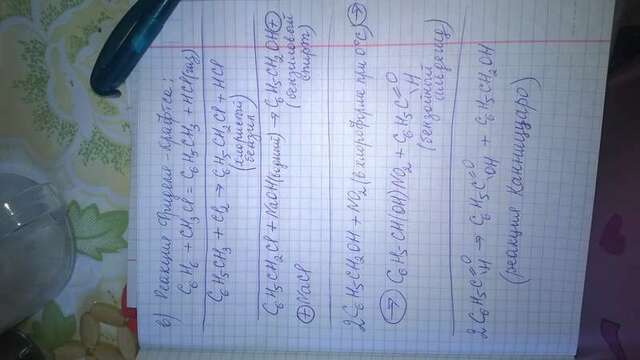 в) Реакция Фриделя-Крафтса:
C₆H₆ + CH₃Cl = C₆H₅CH₃ + HCl(газ)
C₆H₅CH₃ + Cl₂ → C₆H₅CH₂Cl + HCl
(хлористый
бензил)
C₆H₅CH₂Cl + NaOH(водный) → C₆H₅CH₂OH ⊕
(бензиловый
спирт)
⊕ NaCl
2C₆H₅CH₂OH + NO₂ (в хлороформе при 0°C) →
→ C₆H₅CH(OH)NO₂ + C₆H₅C=O
H
(бензойный
альдегид)
2C₆H₅C=O → C₆H₅C=O + C₆H₅CH₂OH
H OH
(реакция Канниццаро)